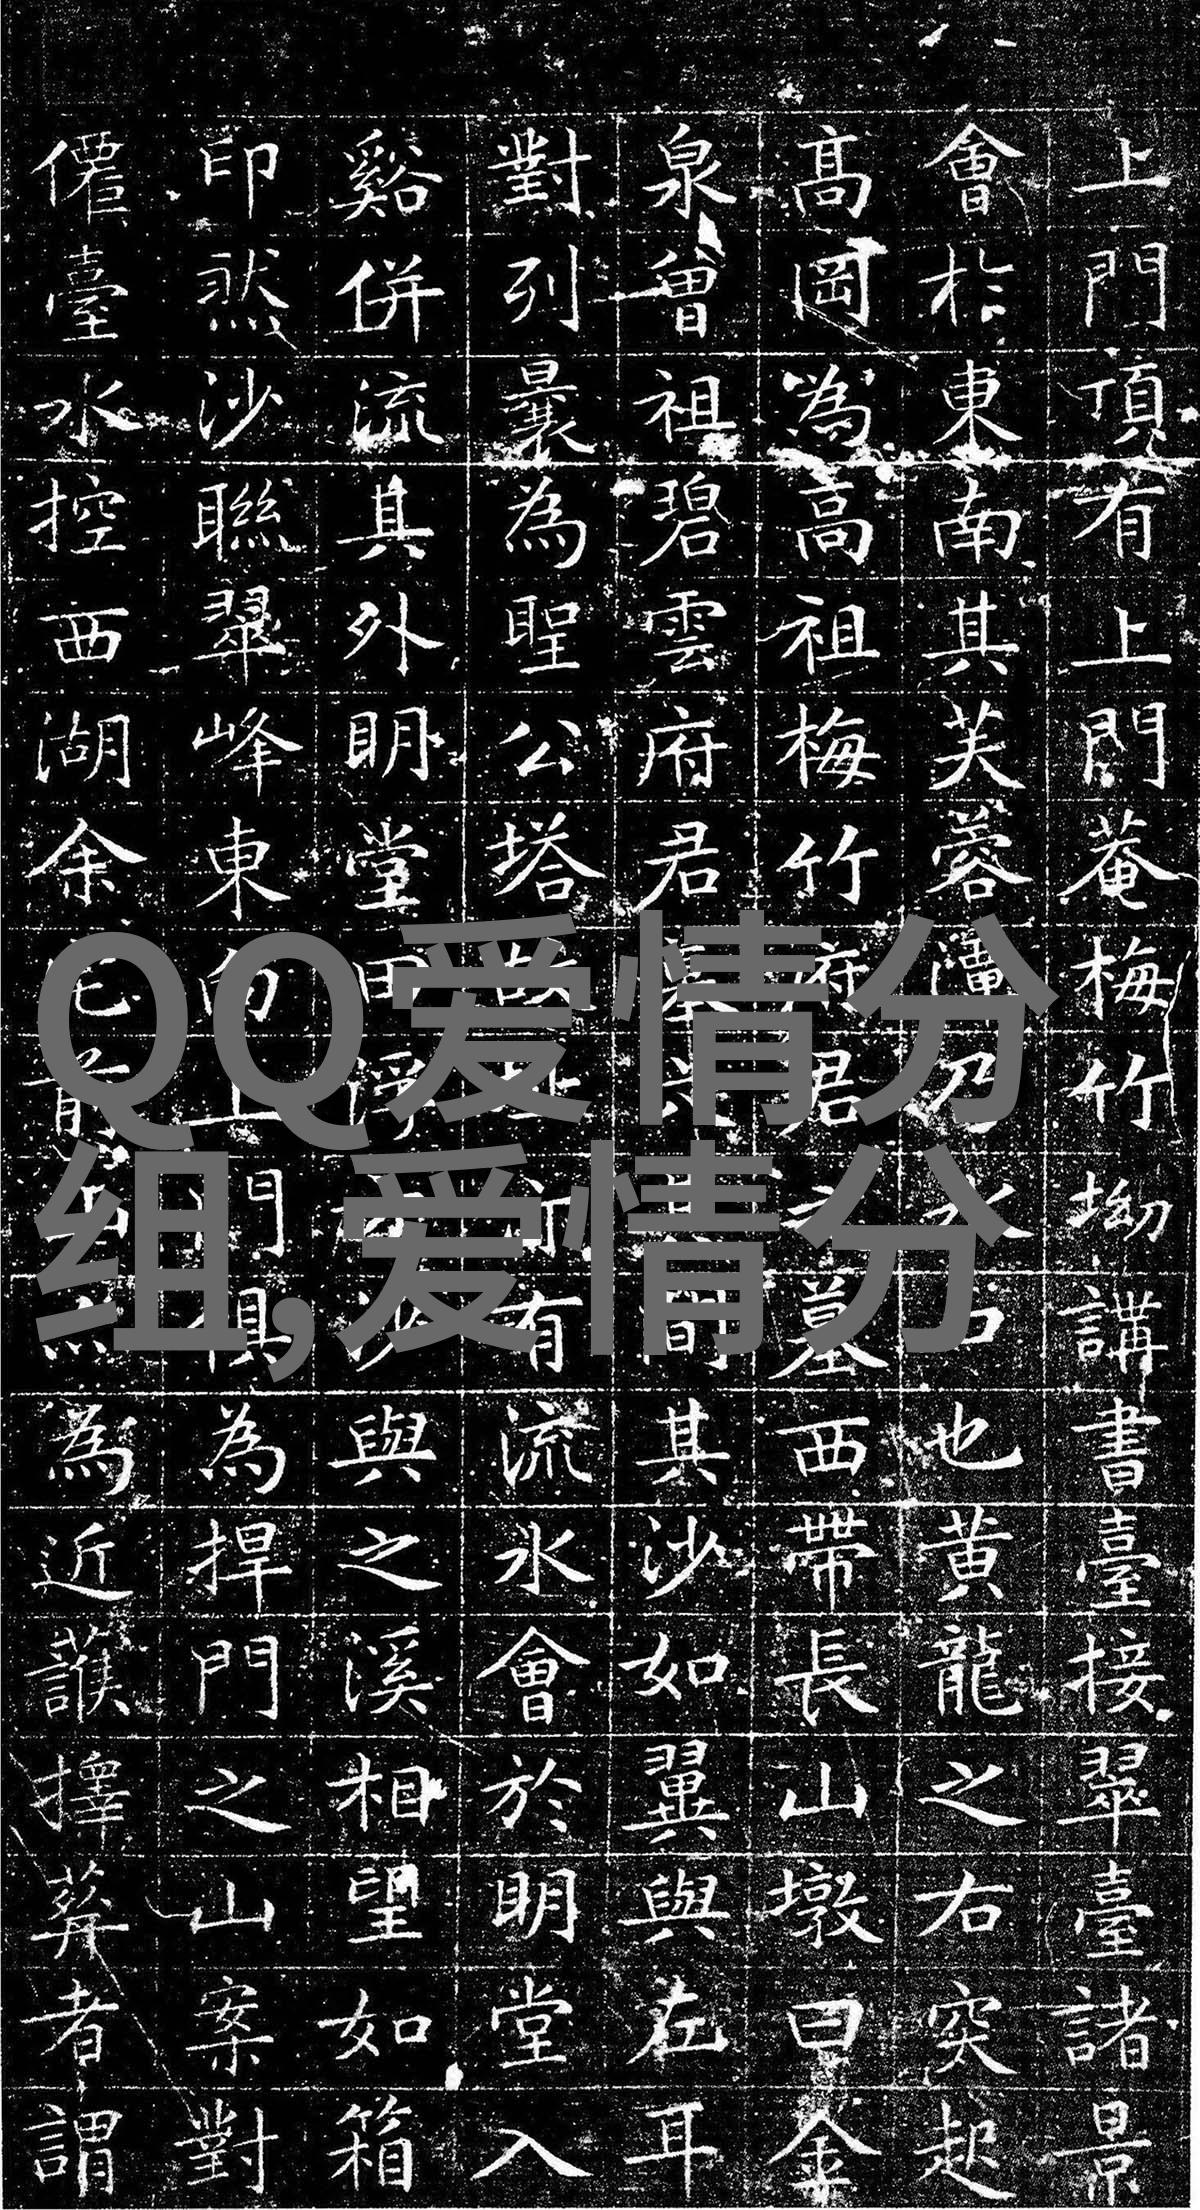 上門頂有上門菴梅竹坳講書臺接翠臺諸景
會於東南其芙蓉潭乃水口也黃龍之右突起
高岡為高祖梅竹府君之墓西帶長山墩曰金
泉曾祖碧雲府君間其沙如翼與左耳
對列曩為聖公塔故址有流水會於明堂入
谿併流其外明堂田浮沙與之溪相望如箱
印然沙聯翠峰東向上門俱為捍門之山案對
僊臺水控西湖余宅前為近擇葬者謂
QQ爱情分
组,爱情分